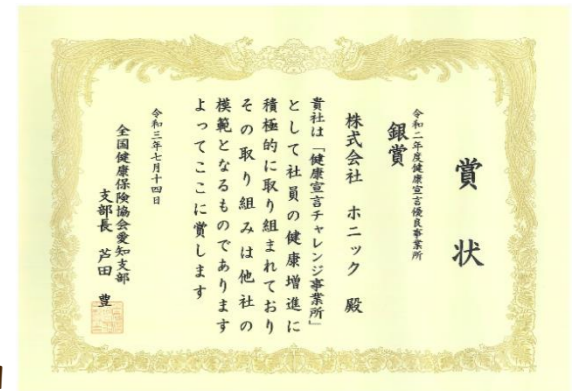 賞状
令和二年度健康宣言優良事業所
銀賞
株式会社 ホニック 殿
貴社は「健康宣言チャレンジ事業所」
として社員の健康増進に
積極的に取り組まれており
その取り組みは他社の
模範となるものであります
よってここに賞します
令和三年七月十四日
全国健康保険協会愛知支部
支部長 芦田 豊